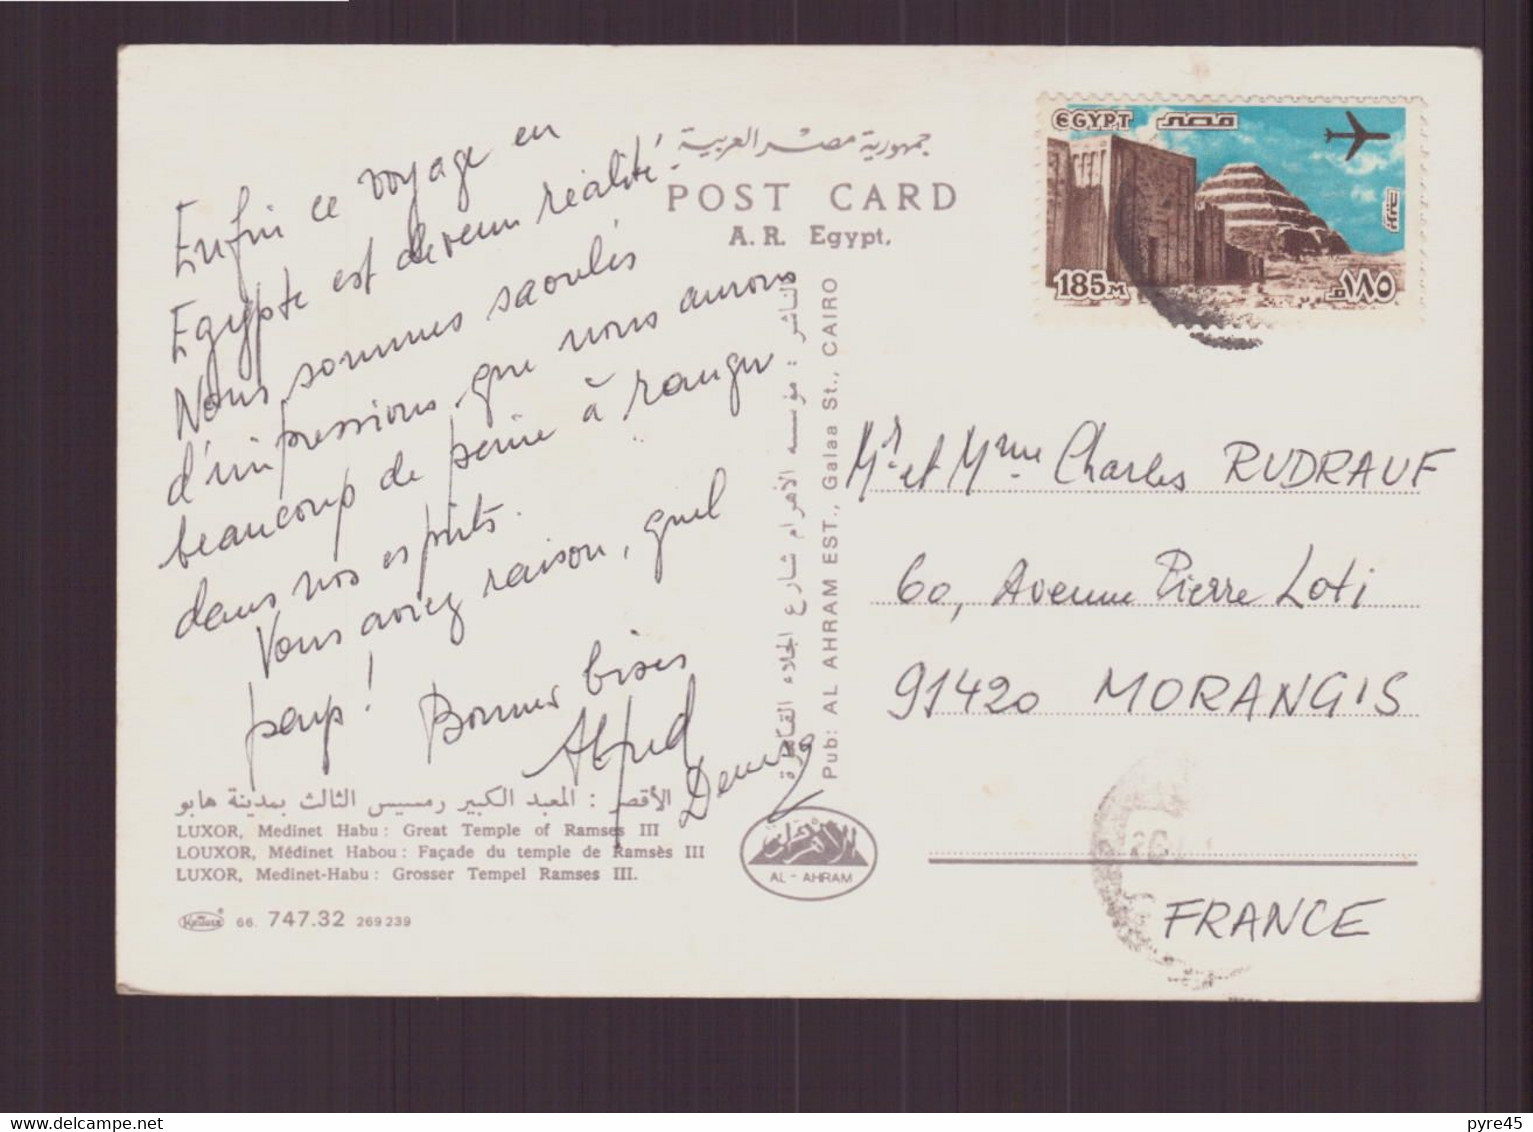 Enfin ce voyage en
Egypte est devenu réalité.
Nous sommes saoulés
d'impressions que nous aurons
beaucoup de peine à ranger
dans nos esprits.
Vous aviez raison, quel
pays! Bonnes bises
Alfred
Denise
جمهورية مصر العربية
POST CARD
A. R. Egypt.
EGYPT مصر
185M ١٨٥م
الناشر : مؤسسه الأهرام شارع الجلاء القاهرة
Pub: AL AHRAM EST., Galaa St., CAIRO
Mr. et Mme Charles RUDRAUF
60, Avenue Pierre Loti
91420 MORANGIS
FRANCE
الأقصر : المعبد الكبير رمسيس الثالث بمدينة هابو
LUXOR, Medinet Habu : Great Temple of Ramses III
LOUXOR, Médinet Habou : Façade du temple de Ramsès III
LUXOR, Medinet-Habu : Grosser Tempel Ramses III.
66. 747.32 269239
الأهرام
AL - AHRAM
www.delcampe.net
pyre45